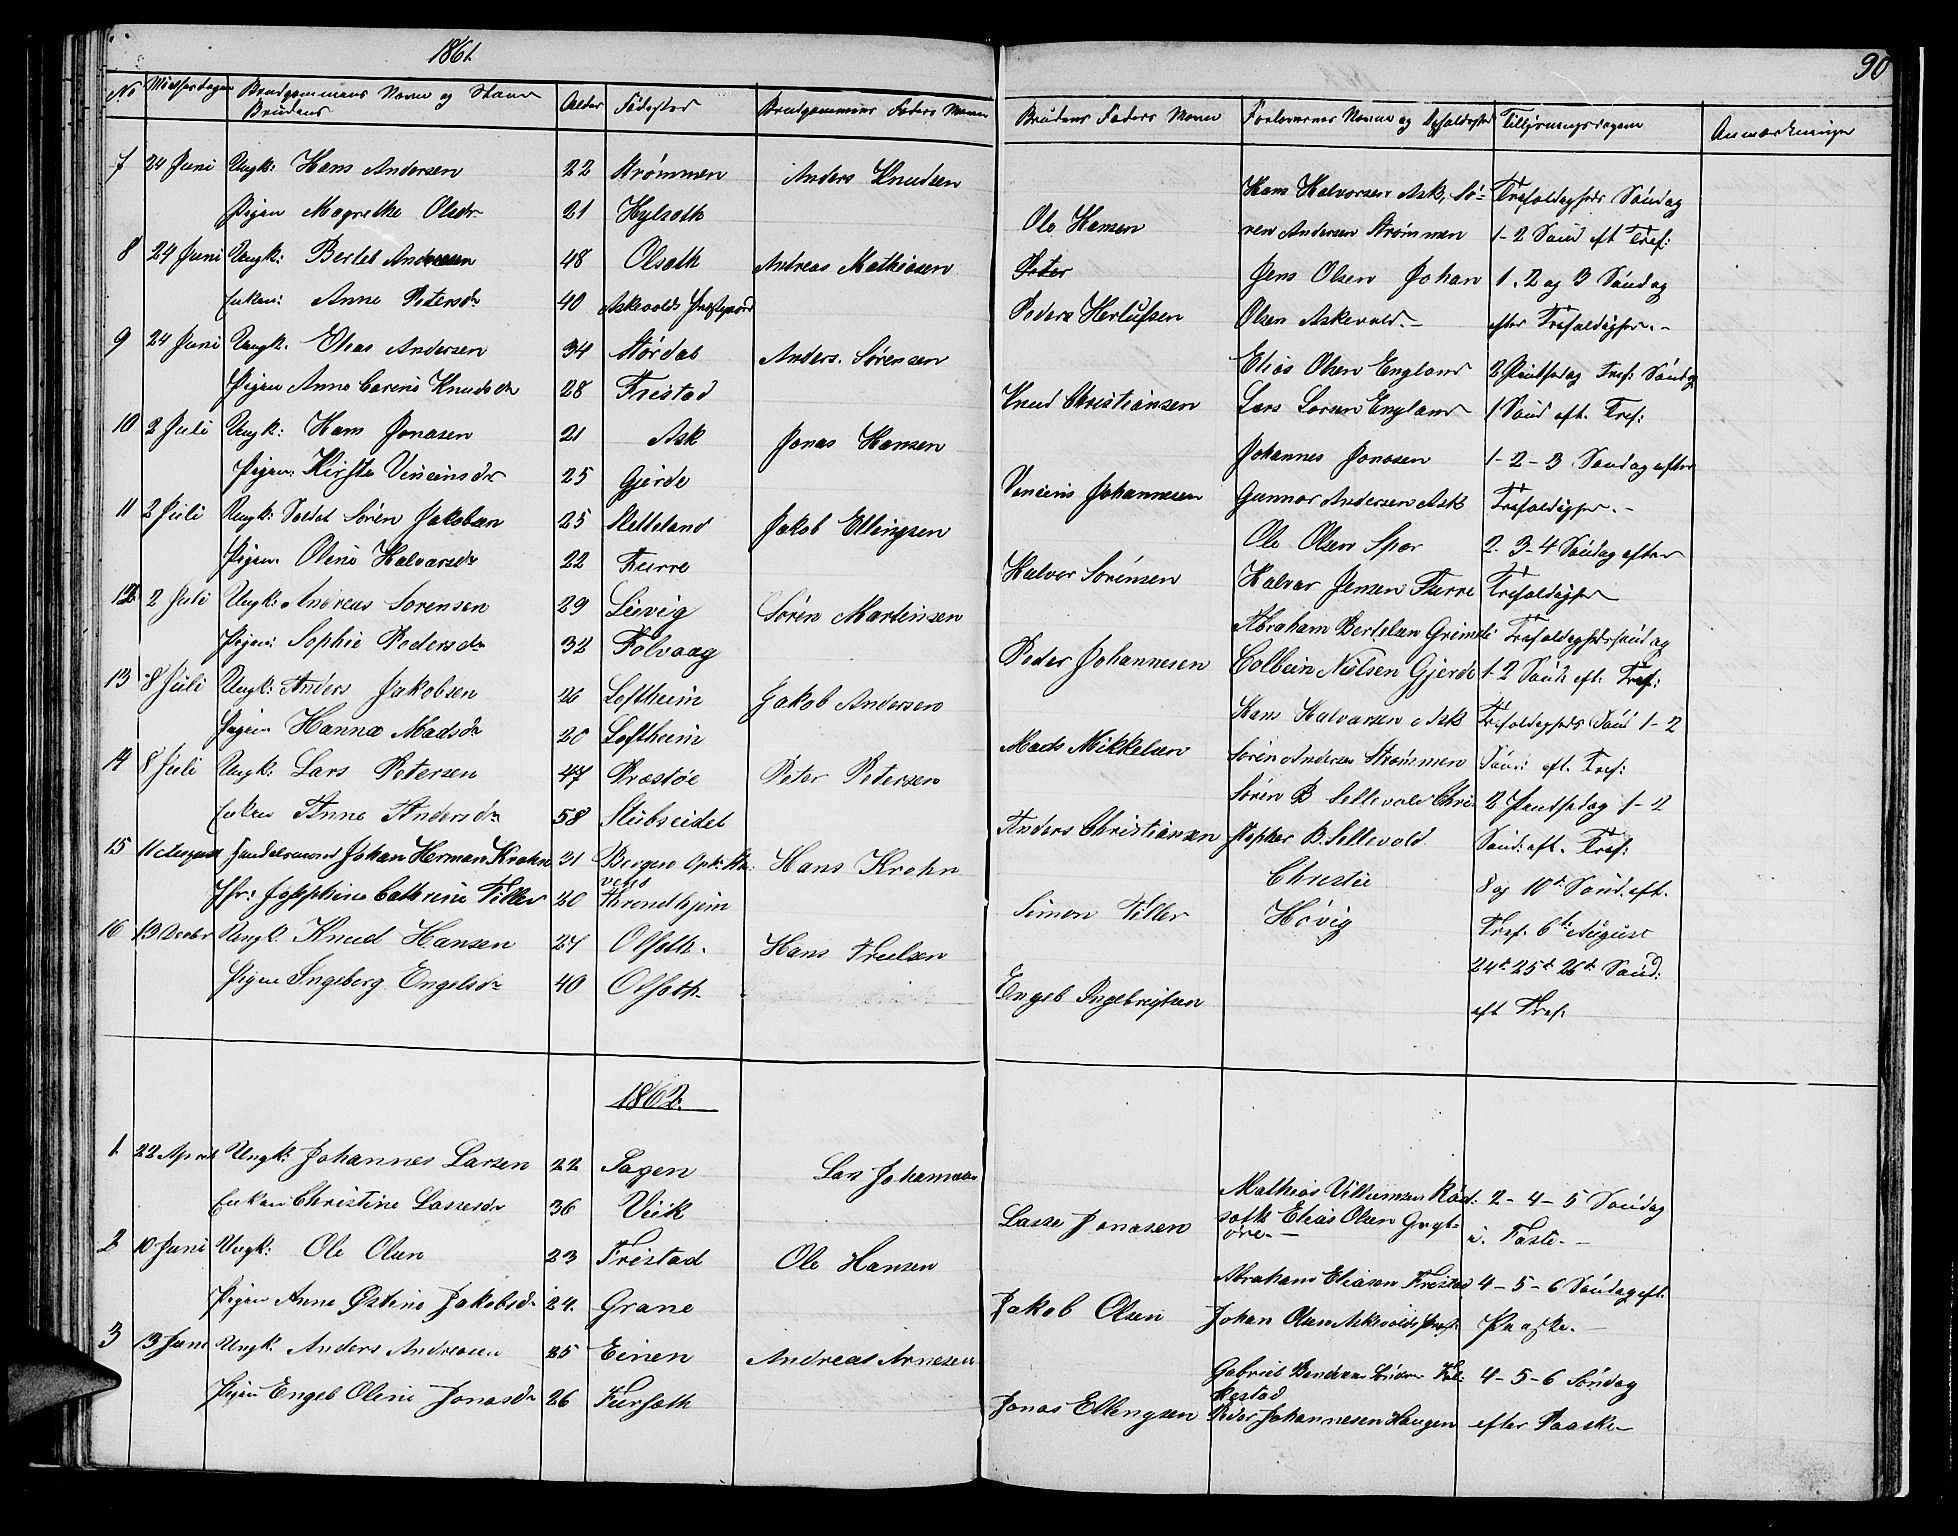 1861.
90
No Vielsesdagen Brudgommens Navn og Stand Alder Fødested Brudgommens Faders Navn Brudens Faders Navn Forlovernes Navne og Opholdssted Tillysningsdagene Anmærkninger
Brudens
7 24 Juni Ungk: Hans Andersen 22 Strømmen Anders Knudsen Hans Halvorsen Ask, Sö- Trefoldigheds Söndag
Pigen Magrethe Olsdr 21 Hylsoth Ole Hansen ren Andersen Strømmen 1-2 Sönd eft Tref:
8 24 Juni Ungk: Bertel Andresen 48 Olsoth Andreas Mathiasen Peter Jens Olsen Johan 1. 2 og 3 Söndag
Enken: Anne Petersdr 40 Askevolds Præstegaard Peders Herlufsen Olsen Askevold.- efter Trefoldighed.-
9 24 Juni Ungk. Elias Andersen 34 Stördal Anders. Sörensen Elias Olsen England 2 Pintsedag Tref: Söndag
Pigen Anne Carine Knudsdr 28 Fristad Knud Christiansen Lars Larsen England 1 Sönd eft. Tref:
10 2 Juli Ungk: Hans Jonasen 21 Ask Jonas Hansen Johannes Jonasen 1-2-3 Söndag efter
Pigen: Kirste Vincinsdr 25 Gjerde Vincins Johannesen Gunnar Andersen Ask Trefoldighed.-
11 2 Juli Ungk: Soldat Sörén Jakobsen 25 Sletteland Jakob Ellingsen Ole Olsen Spor 2. 3-4 Söndag efter
Pigen. Oline Halvarsdr 22 Furre Halvor Sörensen Halvar Jensen Furre Trefoldighed
12 2 Juli Ungk: Andreas Sorensen 29 Leivig Sören Martinsen Abraham Bertelsen Grimeli Trefoldighedssöndag
Pigen: Sophie Pedersdr 32 Folvaag Peder Johannesen Colbein Nilsen Gjerde 1-2 Sönd: eft. Tref:
13 8 Juli Ungk: Anders Jakobsen 26 Loftheim Jakob Andersen Hans Halvarsen Ask Trefoldigheds Sönd 1-2
Pigen Hanna Madsdr 20 Loftheim Mads Mikkelsen Sören Andersen Strømmen Sönd: eft. Tref:
14 8 Juli Ungk: Lars Petersen 47 Præstøe Peter Petersen Sören B Sellevold Chri- 2 Pintsedag 1-2
Enken Anne Andersdr 58 Stubseidet Anders Christiansen stopher B. Sellevold Sönd: eft. Tref:
15 11 August Handelsmand Johan Herman Krohn 31 Bergen Hans Krohn Christie 8 og 10de Sönd. eft.
Jfr: Josephine Cathrine Tiller 20 Trondhjem Simon Tiller Hövig Tref. 6te August
16 13 Decbr Ungk. Knud Hansen 27 Olsoth. Hans Truelsen 24de 25de 26de Sönd:
Pigen Ingeborg Engelsdr 40 Olsoth. Engeb Ingebrigtsen eft Tref:
1862.
1 22 April Ungk: Johannes Larsen 22 Sagen Lars Johannesen Mathias Villumsen Röd: 2-4-5 Söndag
Enken Christine Lassesdr 36 Viik Lasse Jonasen soth Elias Olsen Grytöre.- i. Faste.-
2 10 Juni Ungk: Ole Olsen 23 Fristad Ole Hansen Abraham Eliasen Fristad 4-5-6 Söndag eft.
Pigen Anne Østine Jakobsdr 24. Grane Jakob Olsen Johan Olsen Askevolds Præst: Paaske.-
3 13 Juni Ungk. Anders Andreasen 25 Einen Andreas Arnesen Gabriel 4-5-6 Söndag
Pigen Engeb Oline Jonasdr 26 Fursoth Jonas Ellengsen Peder Johannesen Haugen efter Paaske-